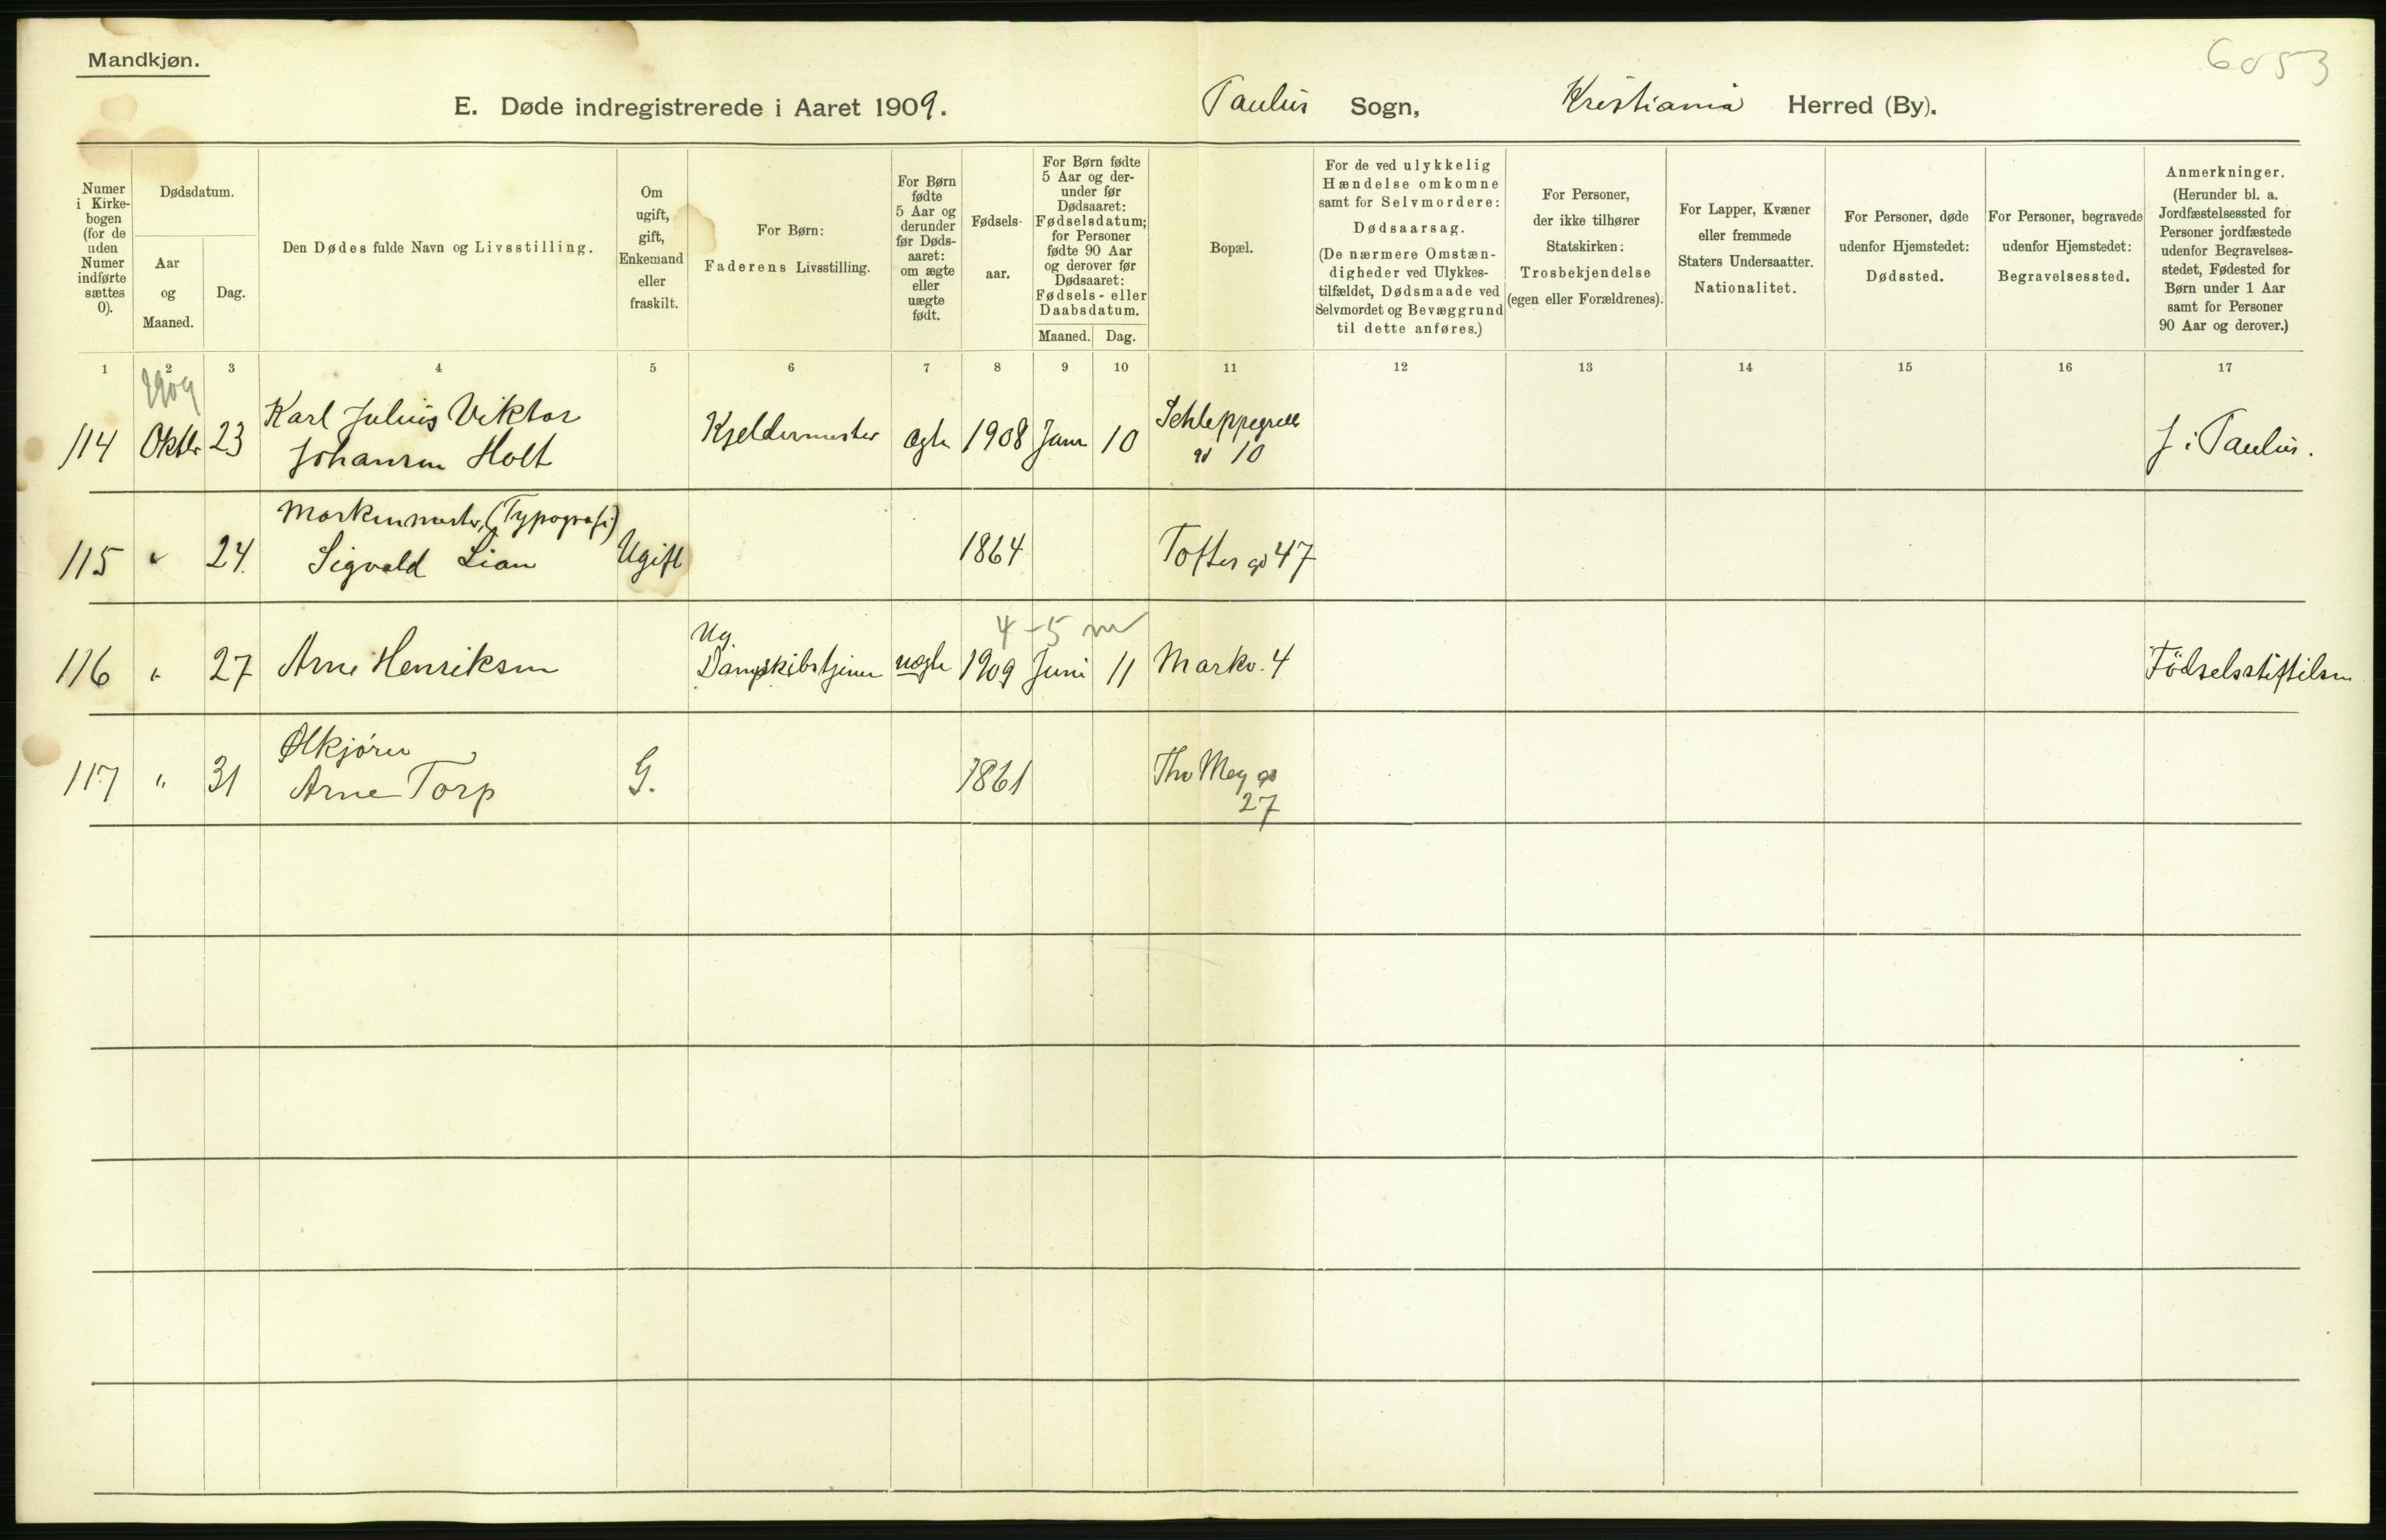 Mandkjøn.
6053
E. Døde indregistrerede i Aaret 1909.
Paulus Sogn,
Kristiania Herred (By).
Numer
i Kirke-
bogen
(for de
uden
Numer
indførte
sættes
0).
Dødsdatum.
Aar
og
Maaned.
Dag.
Den Dødes fulde Navn og Livsstilling.
Om
ugift,
gift,
Enkemand
eller
fraskilt.
For Børn:
Faderens Livsstilling.
For Børn
fødte
5 Aar og
derunder
før Døds-
aaret:
om ægte
eller
uægte
født.
Fødsels-
aar.
For Børn fødte
5 Aar og der-
under før
Dødsaaret:
Fødselsdatum;
for Personer
fødte 90 Aar
og derover før
Dødsaaret:
Fødsels- eller
Daabsdatum.
Maaned. Dag.
Bopæl.
For de ved ulykkelig
Hændelse omkomne
samt for Selvmordere:
Dødsaarsag.
(De nærmere Omstæn-
digheder ved Ulykkes-
tilfældet, Dødsmaade ved
Selvmordet og Bevæggrund
til dette anføres.)
For Personer,
der ikke tilhører
Statskirken:
Trosbekjendelse
(egen eller Forældrenes).
For Lapper, Kvæner
eller fremmede
Staters Undersaatter.
Nationalitet.
For Personer, døde
udenfor Hjemstedet:
Dødssted.
For Personer, begravede
udenfor Hjemstedet:
Begravelsessted.
Anmerkninger.
(Herunder bl. a.
Jordfæstelsessted for
Personer jordfæstede
udenfor Begravelses-
stedet, Fødested for
Børn under 1 Aar
samt for Personer
90 Aar og derover.)
1 2 3 4 5 6 7 8 9 10 11 12 13 14 15 16 17
1909
Karl Julius Viktor
114 Oktbr 23 Johansen Holt Kjeldermester ægte 1908 Janr 10 Schleppegrell
gd 10
J i Paulus.
(Typografi)
115 " 24. Sigvald Lian Ugift 1864 Toftes gd 47
4-5 m
Ug.
116 " 27 Arne Henriksen Dampskibstjener uægte 1909 Juni 11 Markv. 4 Födselsstiftelsen
Ølkjører
117 " 31 Arne Torp G. 1861 Thv Mey gd
27